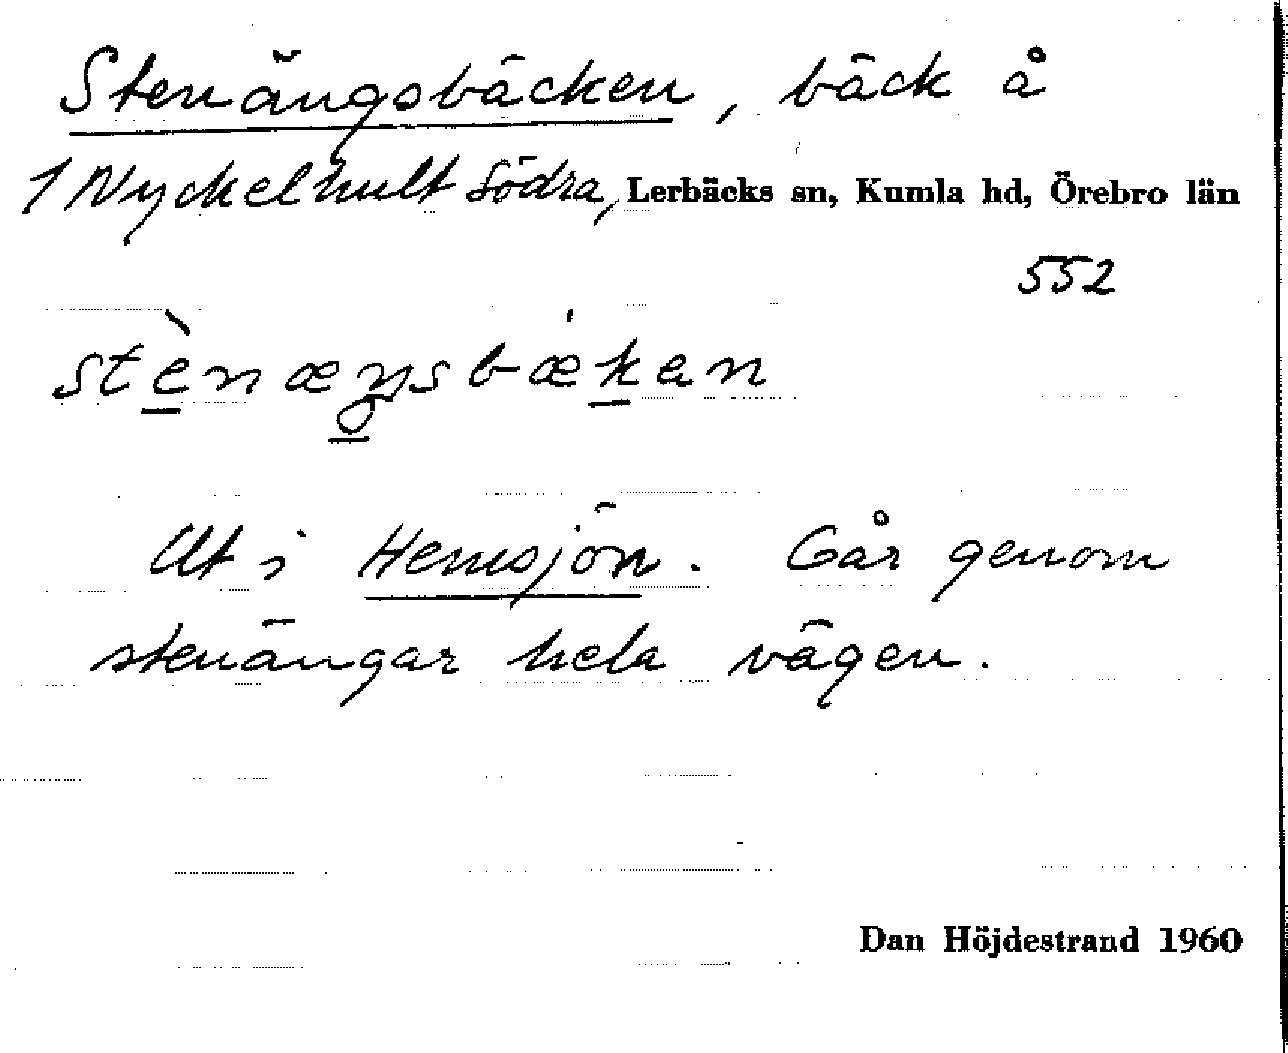 Stenängsbäcken, bäck å
1 Nyckelhult Södra, Lerbäcks sn, Kumla hd, Örebro län
552
stènæŋsbækan
Ut i Hemsjön. Går genom
stenängar hela vägen.
Dan Höjdestrand 1960